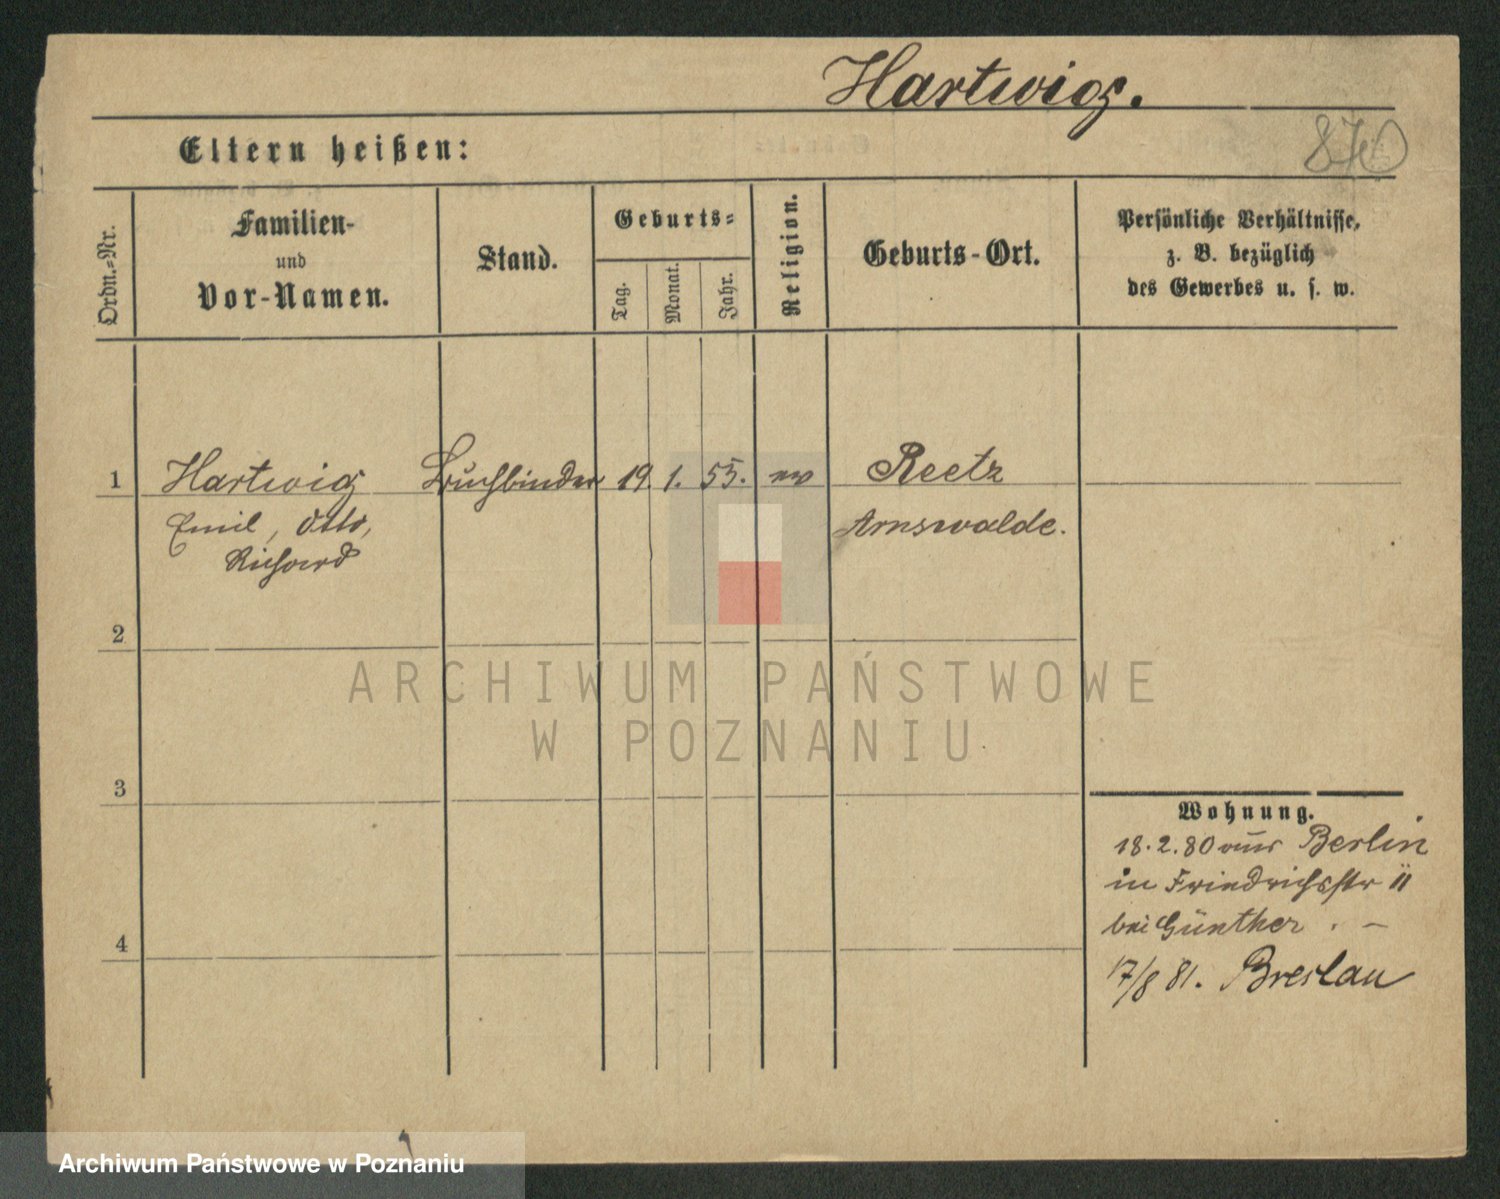 Hartwig.
870
Eltern heißen:
Ordn.=Nr.
Familien-
und
Vor-Namen.
Stand.
Geburts=
Tag.
Monat.
Jahr.
Religion.
Geburts-Ort.
Persönliche Verhältnisse,
z. B. bezüglich
des Gewerbes u. s. w.
1 Hartwig Buchbinder 19. 1. 55. ev Reetz
Emil, Otto, Arnswalde.
Richard
2
3
4
Wohnung.
18.2.80 aus Berlin
in Friedrichsstr 11
bei Günther . –
17/8 81. Breslau
ARCHIWUM PAŃSTWOWE
W POZNANIU
Archiwum Państwowe w Poznaniu